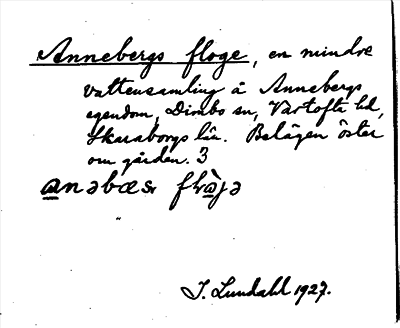 Annebergs floge, en mindre
vattensamling å Annebergs
egendom, Dimbo sn, Vartofta hd,
Skaraborgs län. Belägen öster
om gården. 3
J. Lundahl 1927.